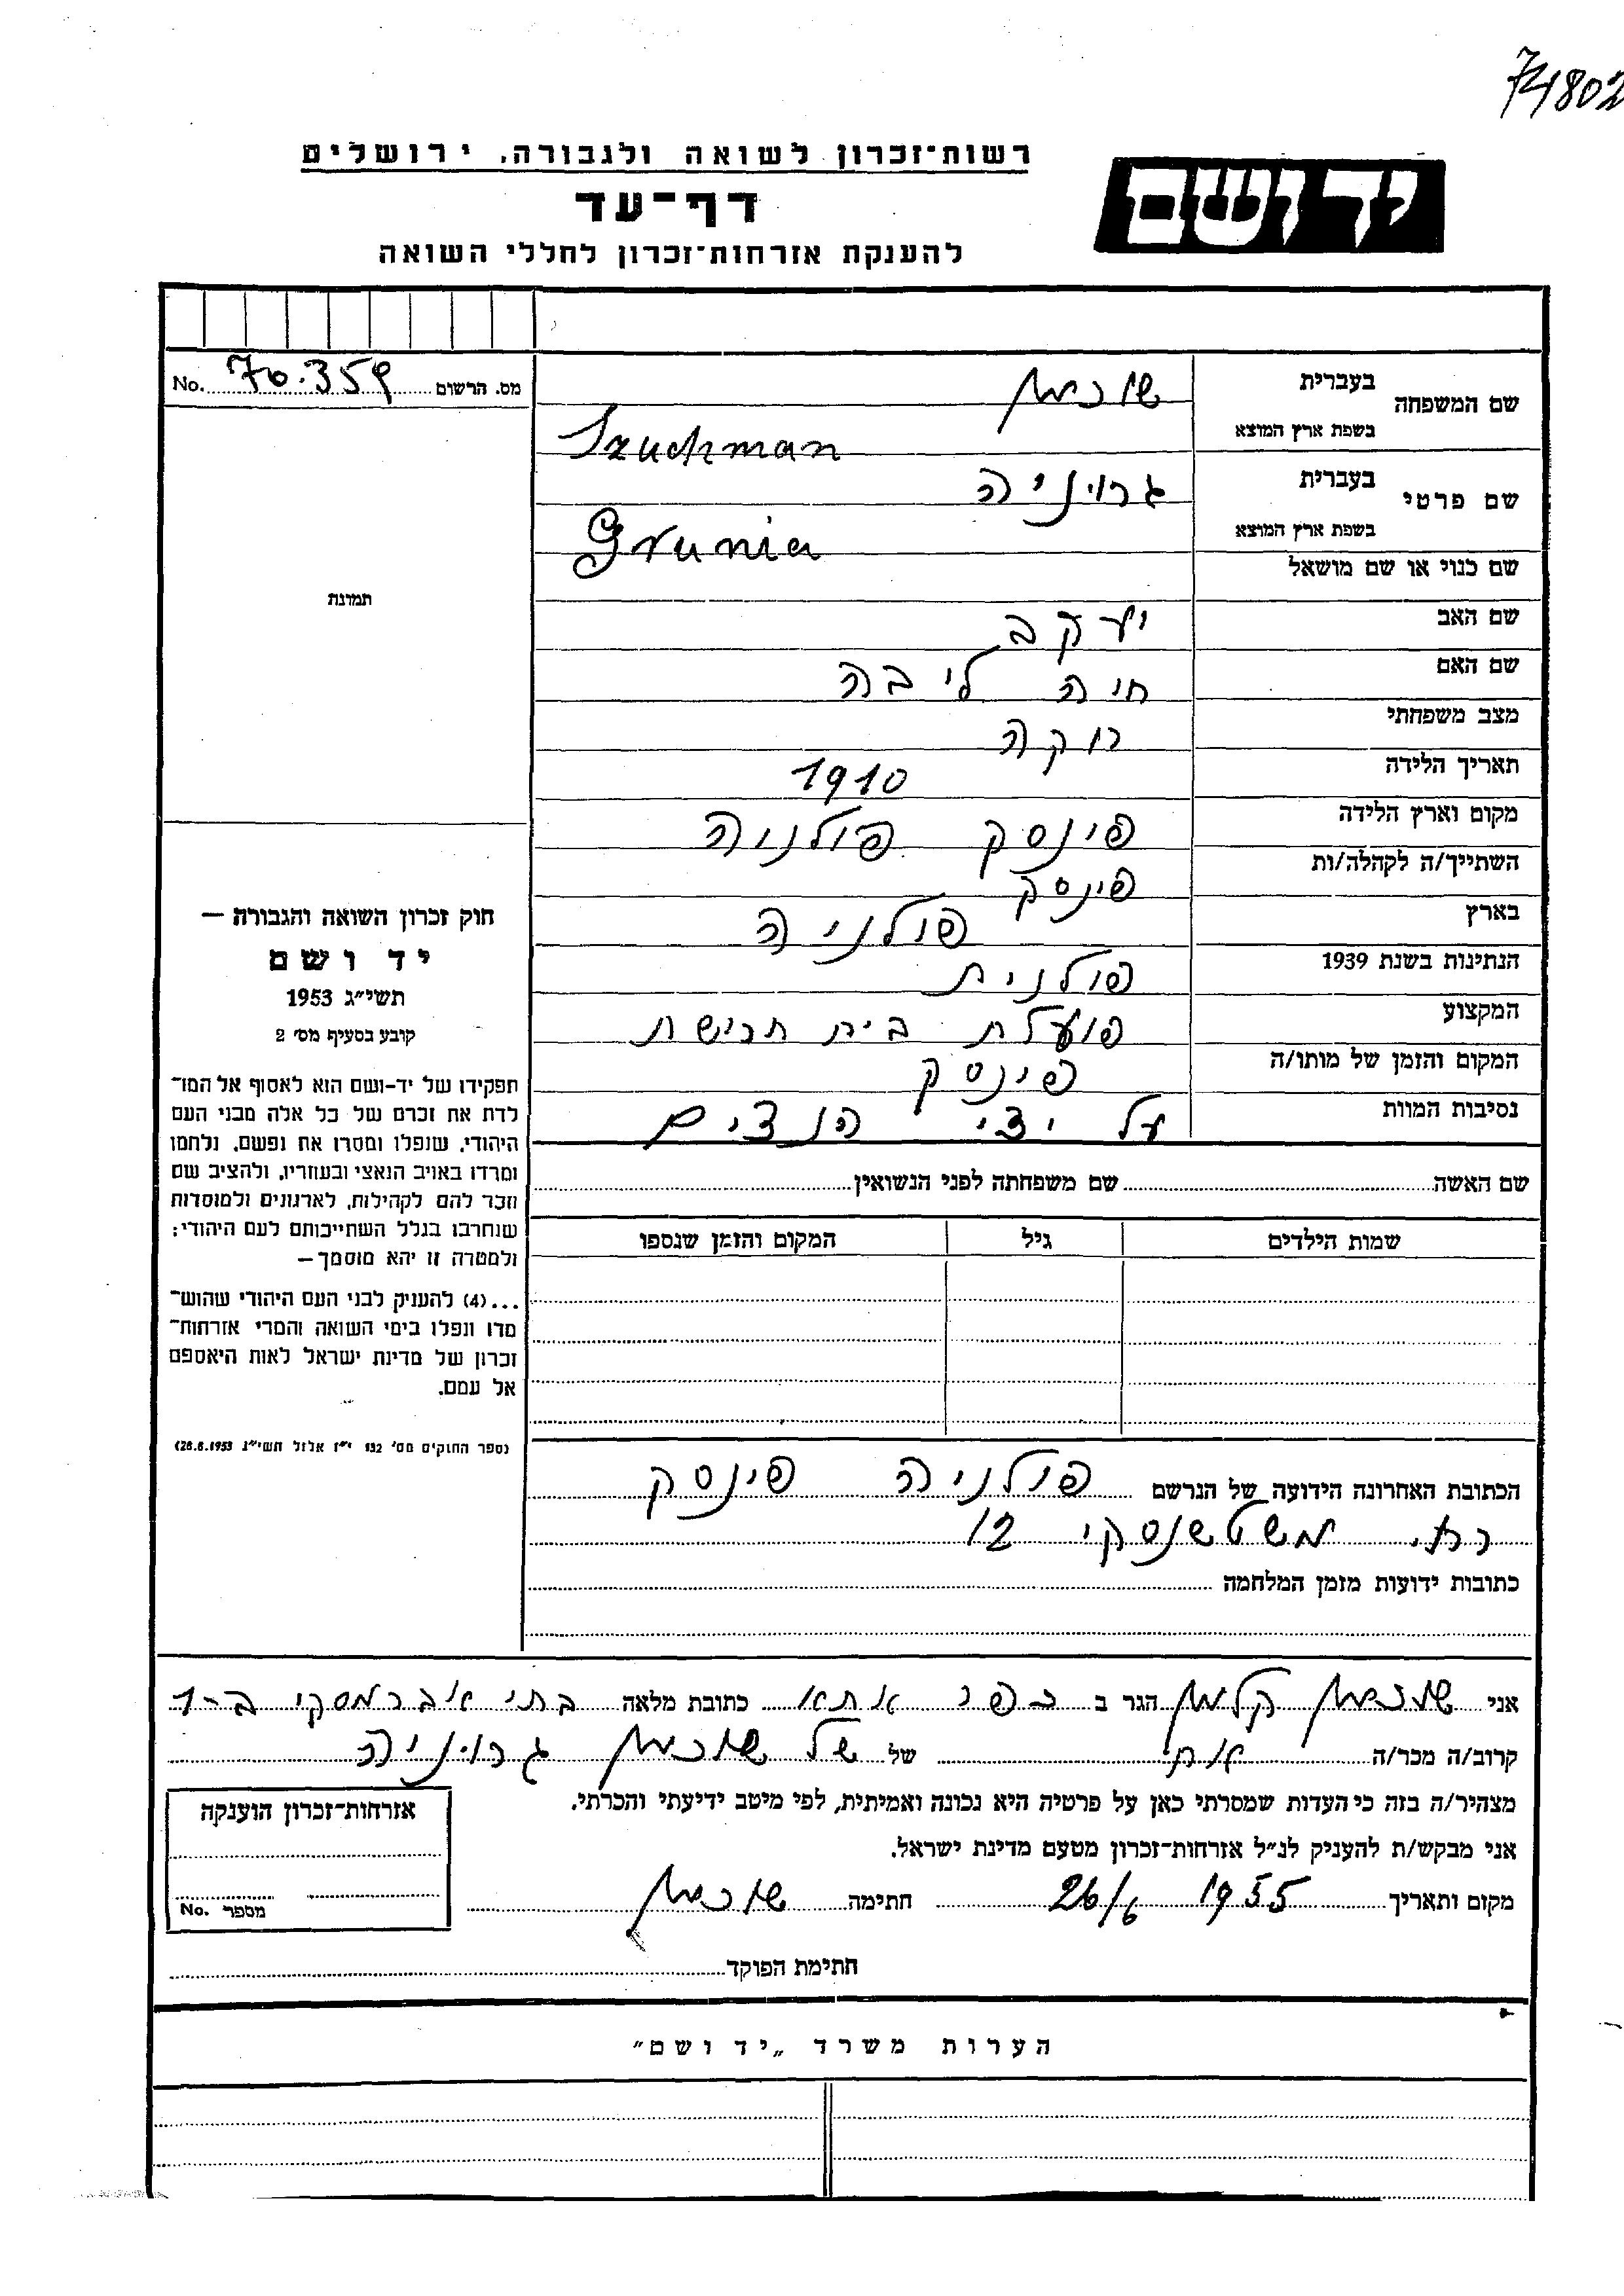 74802
רשות־זכרון לשואה ולגבורה, ירושלים
יד ושם
דף־עד
להענקת אזרחות־זכרון לחללי השואה
מס. הרשום 70.359 No.
שם המשפחה בעברית שוכמן
בשפת ארץ המוצא Szuchman
שם פרטי בעברית גרוניה
בשפת ארץ המוצא Grunia
שם כנוי או שם מושאל
שם האב יעקב
שם האם חיה ליבה
מצב משפחתי רוקה
תאריך הלידה 1910
מקום וארץ הלידה פינסק פולניה
השתייך/ה לקהלה/ות פינסק
בארץ פולניה
הנתינות בשנת 1939 פולנית
המקצוע פועלת בית חרישת
המקום והזמן של מותו/ה פינסק
נסיבות המוות על ידי הנצים
שם האשה שם משפחתה לפני הנשואין
שמות הילדים גיל המקום והזמן שנספו
הכתובת האחרונה הידועה של הנרשם פולניה פינסק
12
כתובות ידועות מזמן המלחמה
תמונה
חוק זכרון השואה והגבורה —
יד ושם
תשי״ג 1953
קובע בסעיף מס׳ 2
תפקידו של יד-ושם הוא לאסוף אל המו־
לדת את זכרם של כל אלה מבני העם
היהודי, שנפלו ומסרו את נפשם, נלחמו
ומרדו באויב הנאצי ובעוזריו, ולהציב שם
וזכר להם לקהילות, לארגונים ולמוסדות
שנחרבו בגלל השתייכותם לעם היהודי;
ולמטרה זו יהא מוסמך —
...(4) להעניק לבני העם היהודי שהוש־
מדו ונפלו בימי השואה והמרי אזרחות־
זכרון של מדינת ישראל לאות היאספם
אל עמם.
(ספר החוקים מס׳ 132 י״ז אלול תשי״ג 28.8.1953)
אני שוכמן קלמן הגר ב כפר אתא כתובת מלאה בתי אברמסקי ב-1
קרוב/ה מכר/ה אח של של שוכמן גרוניה
מצהיר/ה בזה כי העדות שמסרתי כאן על פרטיה היא נכונה ואמיתית, לפי מיטב ידיעתי והכרתי.
אני מבקש/ת להעניק לנ״ל אזרחות־זכרון מטעם מדינת ישראל.
מקום ותאריך 1955 26/6 חתימה שוכמן
חתימת הפוקד
אזרחות־זכרון הוענקה
מספר No.
הערות משרד „יד ושם״